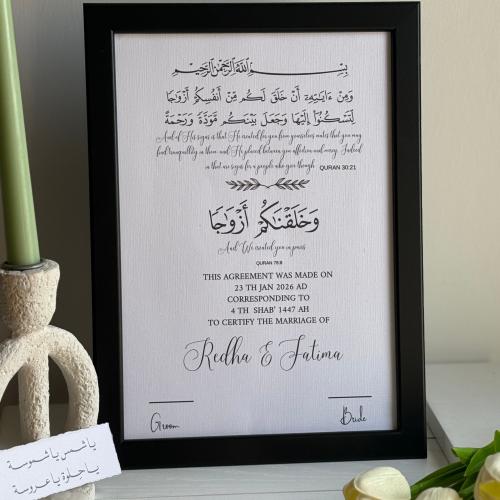 بِسْمِ اللَّهِ الرَّحْمَٰنِ الرَّحِيمِ
وَمِنْ ءَايَـٰتِهِۦٓ أَنْ خَلَقَ لَكُم مِّنْ أَنفُسِكُمْ أَزْوَٰجًا
لِّتَسْكُنُوٓا۟ إِلَيْهَا وَجَعَلَ بَيْنَكُم مَّوَدَّةً وَرَحْمَةً
And of His signs is that He created for you from yourselves mates that you may
find tranquillity in them and He placed between you affection and mercy. Indeed
in that are signs for a people who give though QURAN 30:21
وَخَلَقْنَـٰكُمْ أَزْوَٰجًا
And We created you in pairs
QURAN 78:8
THIS AGREEMENT WAS MADE ON
23 TH JAN 2026 AD
CORRESPONDING TO
4 TH SHAB' 1447 AH
TO CERTIFY THE MARRIAGE OF
Redha & Fatima
Groom Bride
يا شمس يا شموسة
يا حلوة يا عروسة